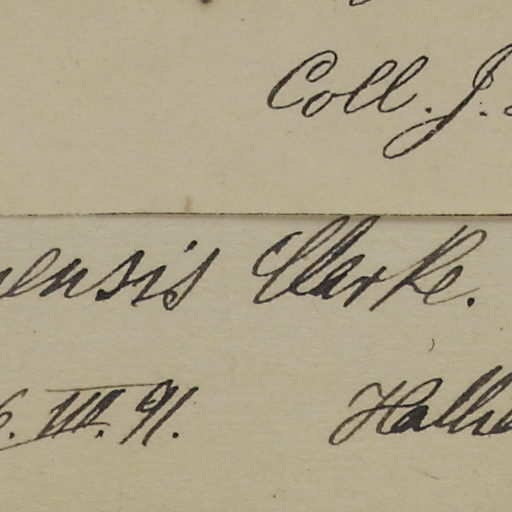 Coll. J.
ensis Clarke.
6. III. 91. Hallie